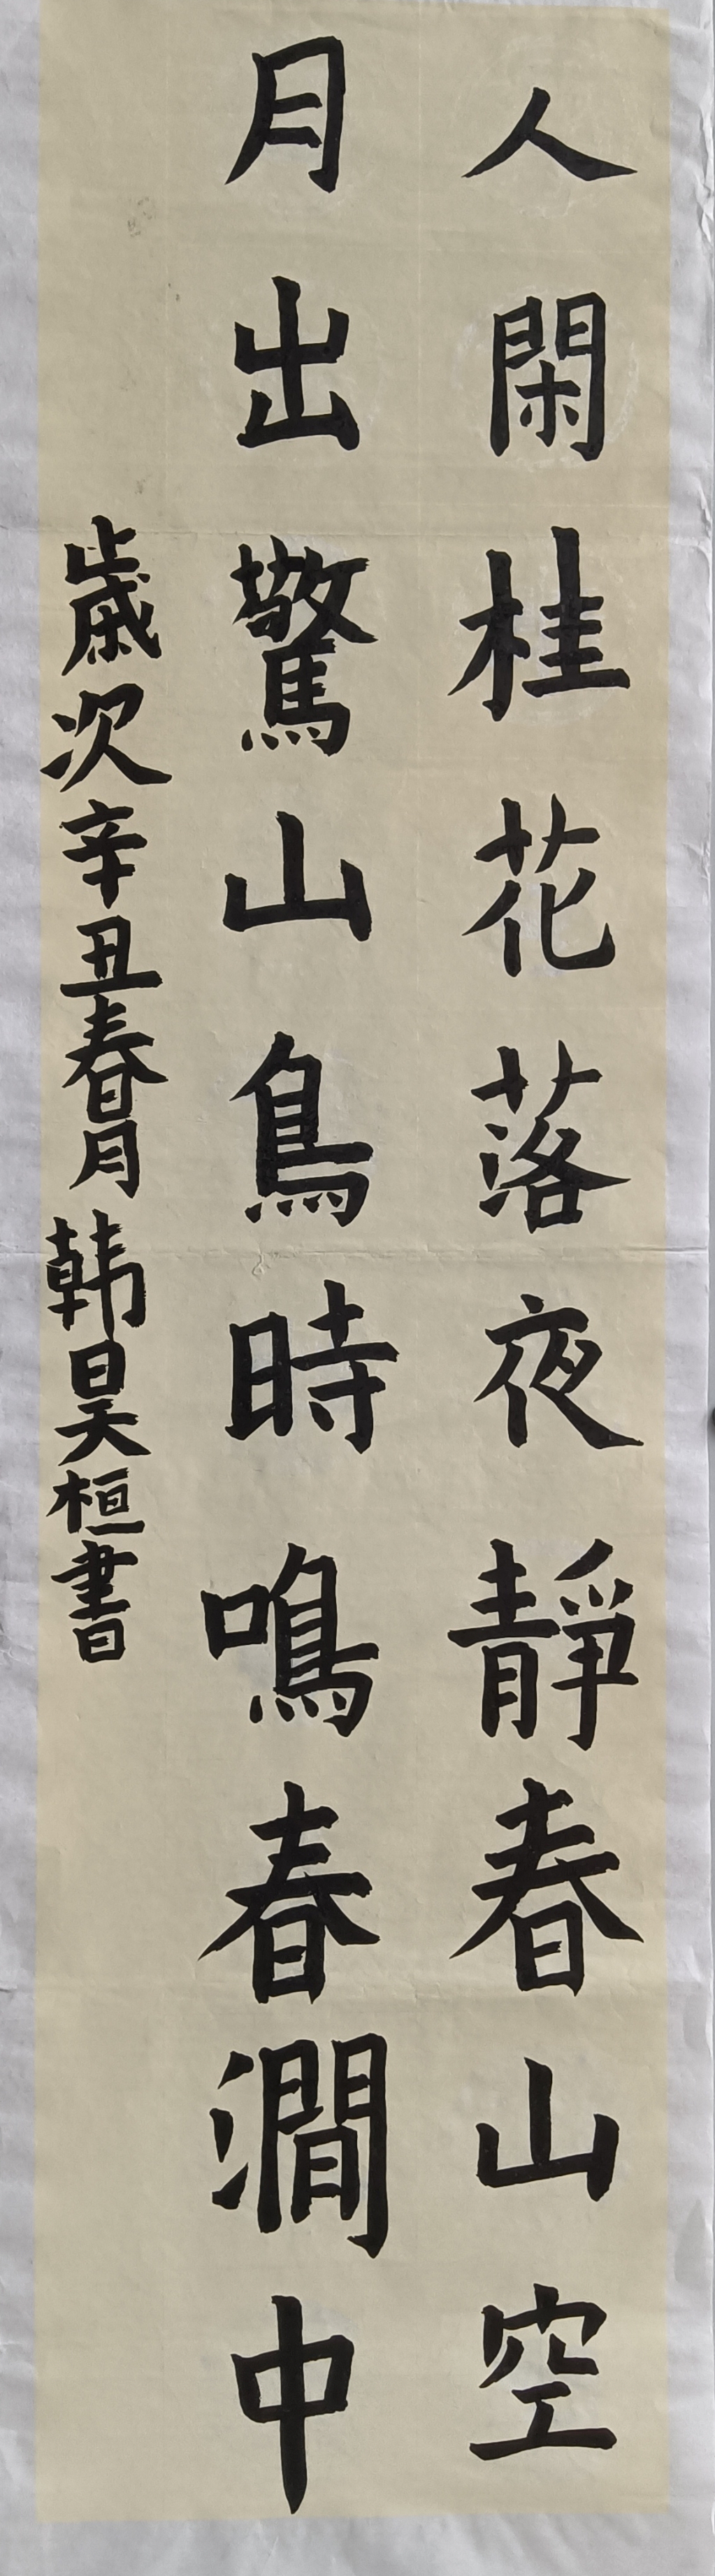 人閑桂花落夜靜春山空
月出驚山鳥時鳴春澗中
歳次辛丑春月韩昊桓書